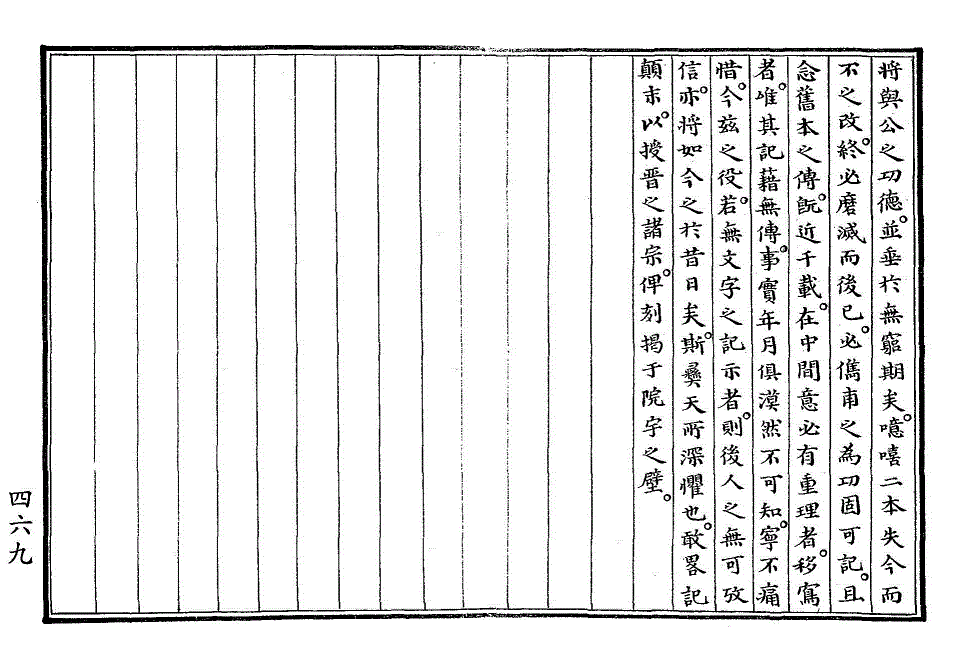 將與公之功德。並垂於無窮期矣。噫嘻二本失今而
不之改終。必磨滅而後已。必儁甫之為功固可記。且
念舊本之傳。既近千載。在中間意必有重理者。移寫
者。唯其記藉無傳。事實年月俱漠然不可知。寧不痛
惜。今茲之役。若無文字之記示者。則後人之無可攷
信。亦將如今之於昔日矣。斯彛天所深懼也。敢畧記
顛末。以授晋之諸宗。俾刻揭于院宇之壁。
四六九